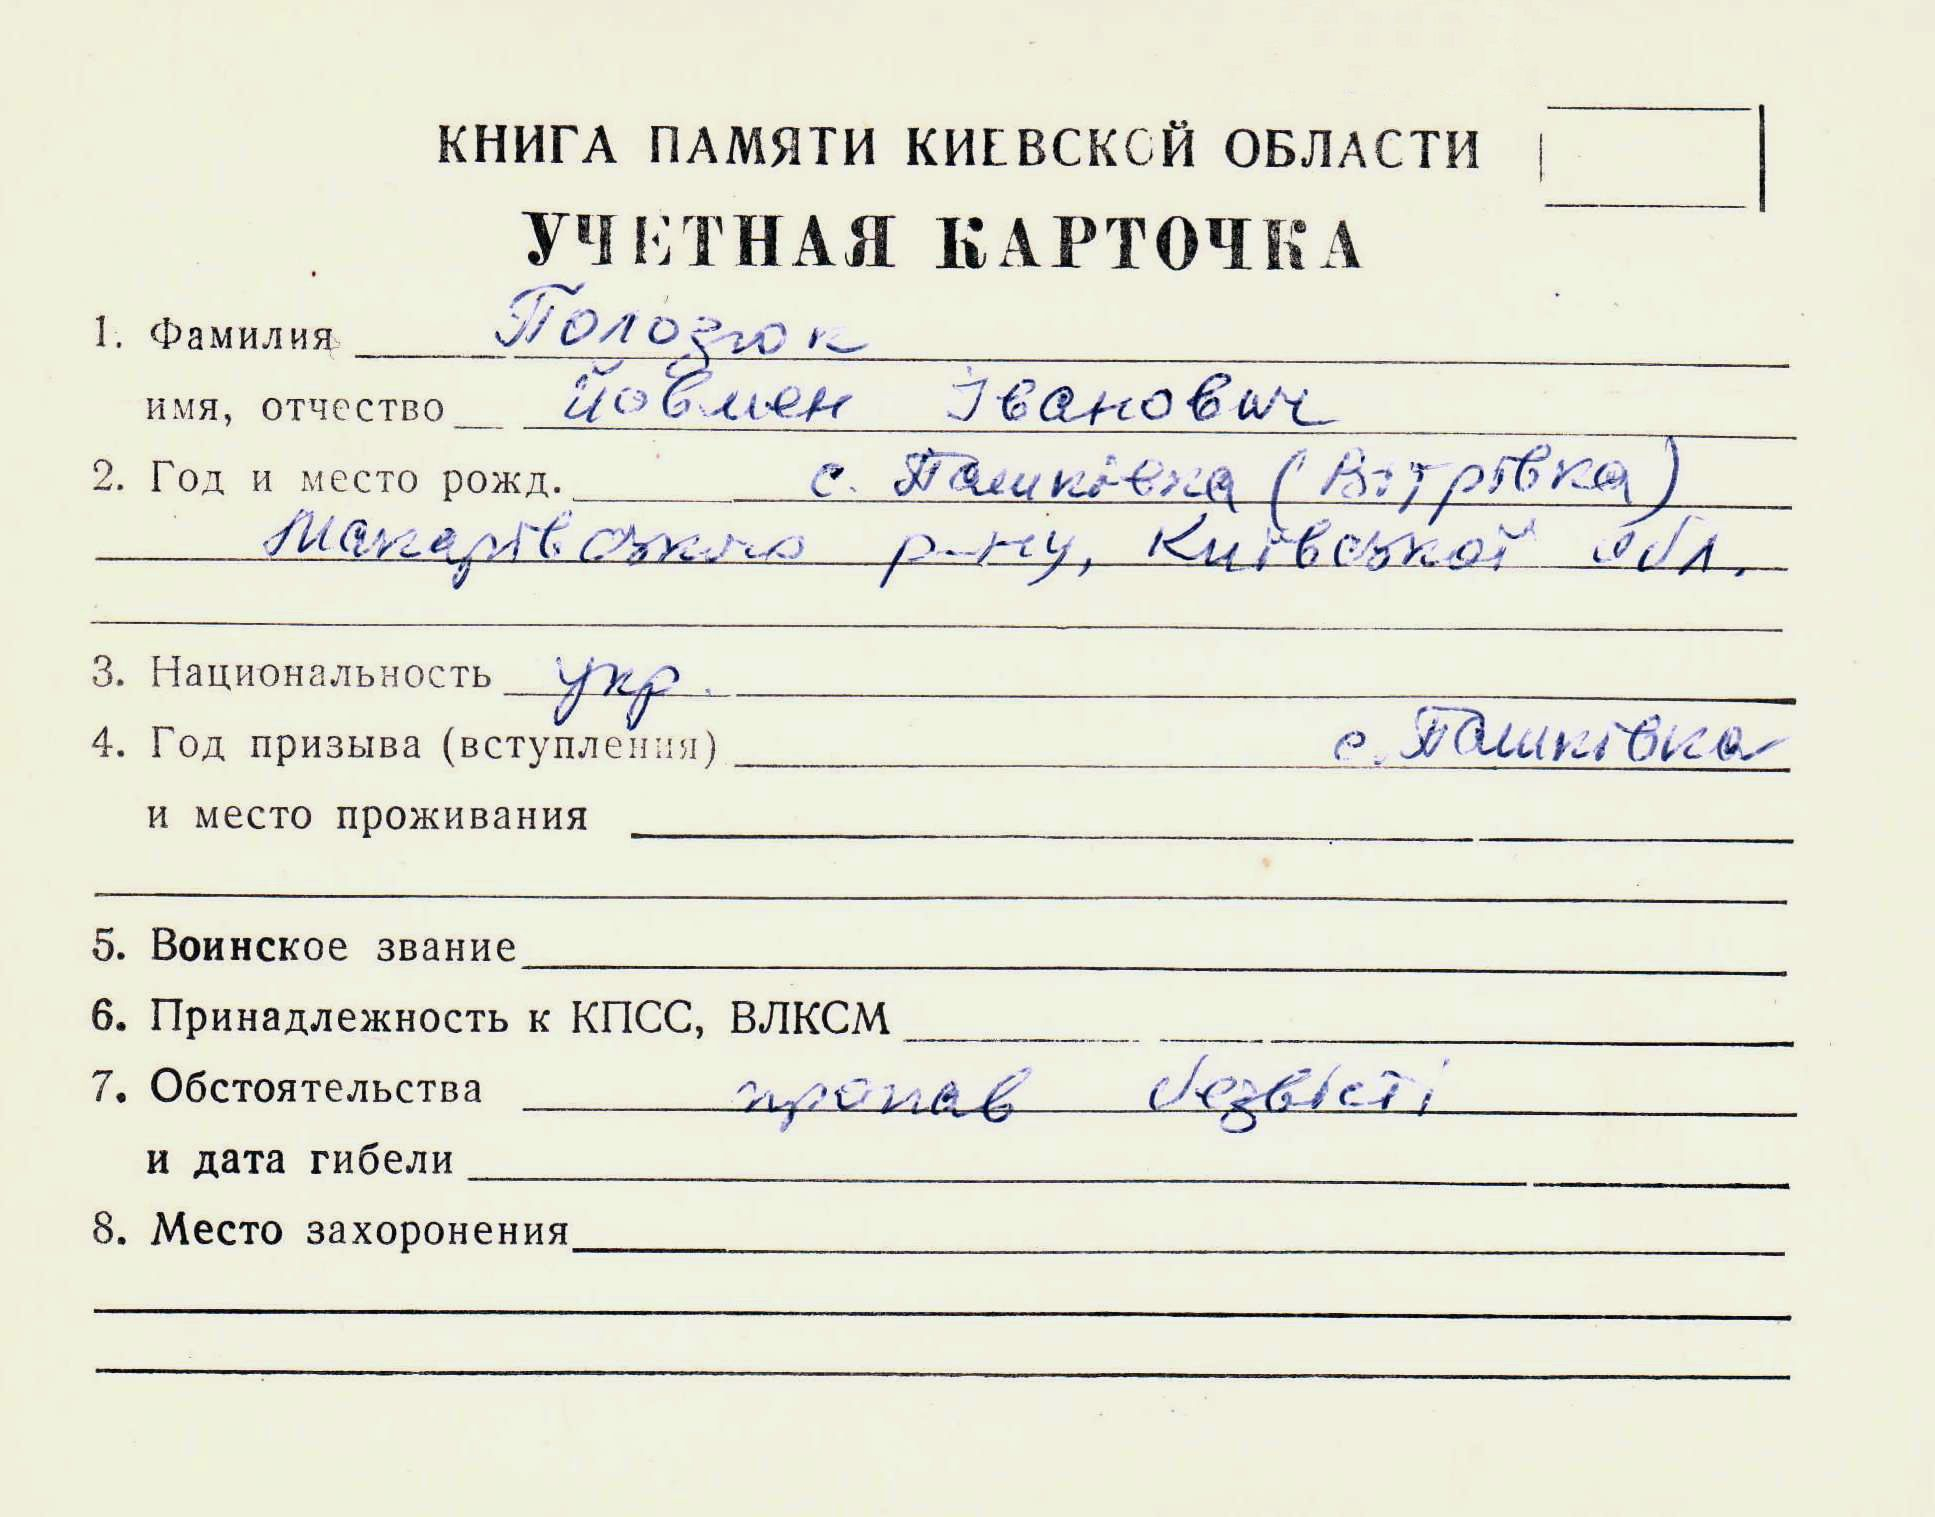 КНИГА ПАМЯТИ КИЕВСКОЙ ОБЛАСТИ
УЧЕТНАЯ КАРТОЧКА
1. Фамилия Полозюк
имя, отчество Йовмен Іванович
2. Год и место рожд. с. Пашківка (Вітрівка)
Макарівського р-ну, Київської обл.
3. Национальность укр.
4. Год призыва (вступления) с. Пашківка
и место проживания
5. Воинское звание
6. Принадлежность к КПСС, ВЛКСМ
7. Обстоятельства пропав безвісті
и дата гибели
8. Место захоронения